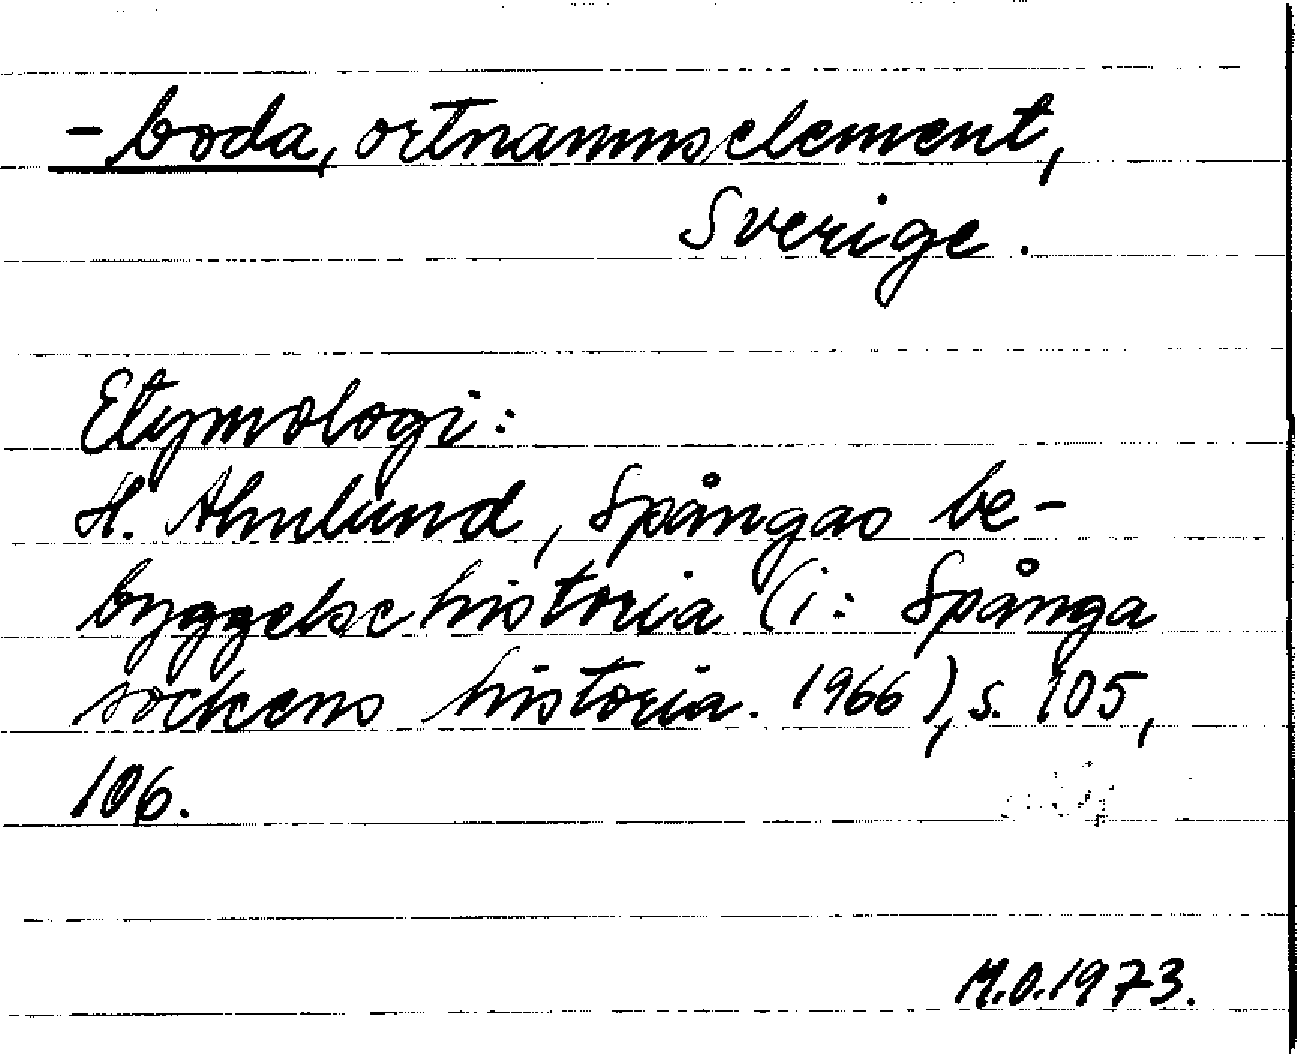 -boda, ortnamnselement,
Sverige.
Etymologi:
H. Ahnlund, Spångas be-
byggelsehistoria (i: Spånga
sockens historia. 1966), s. 105,
106.
M.O.1973.